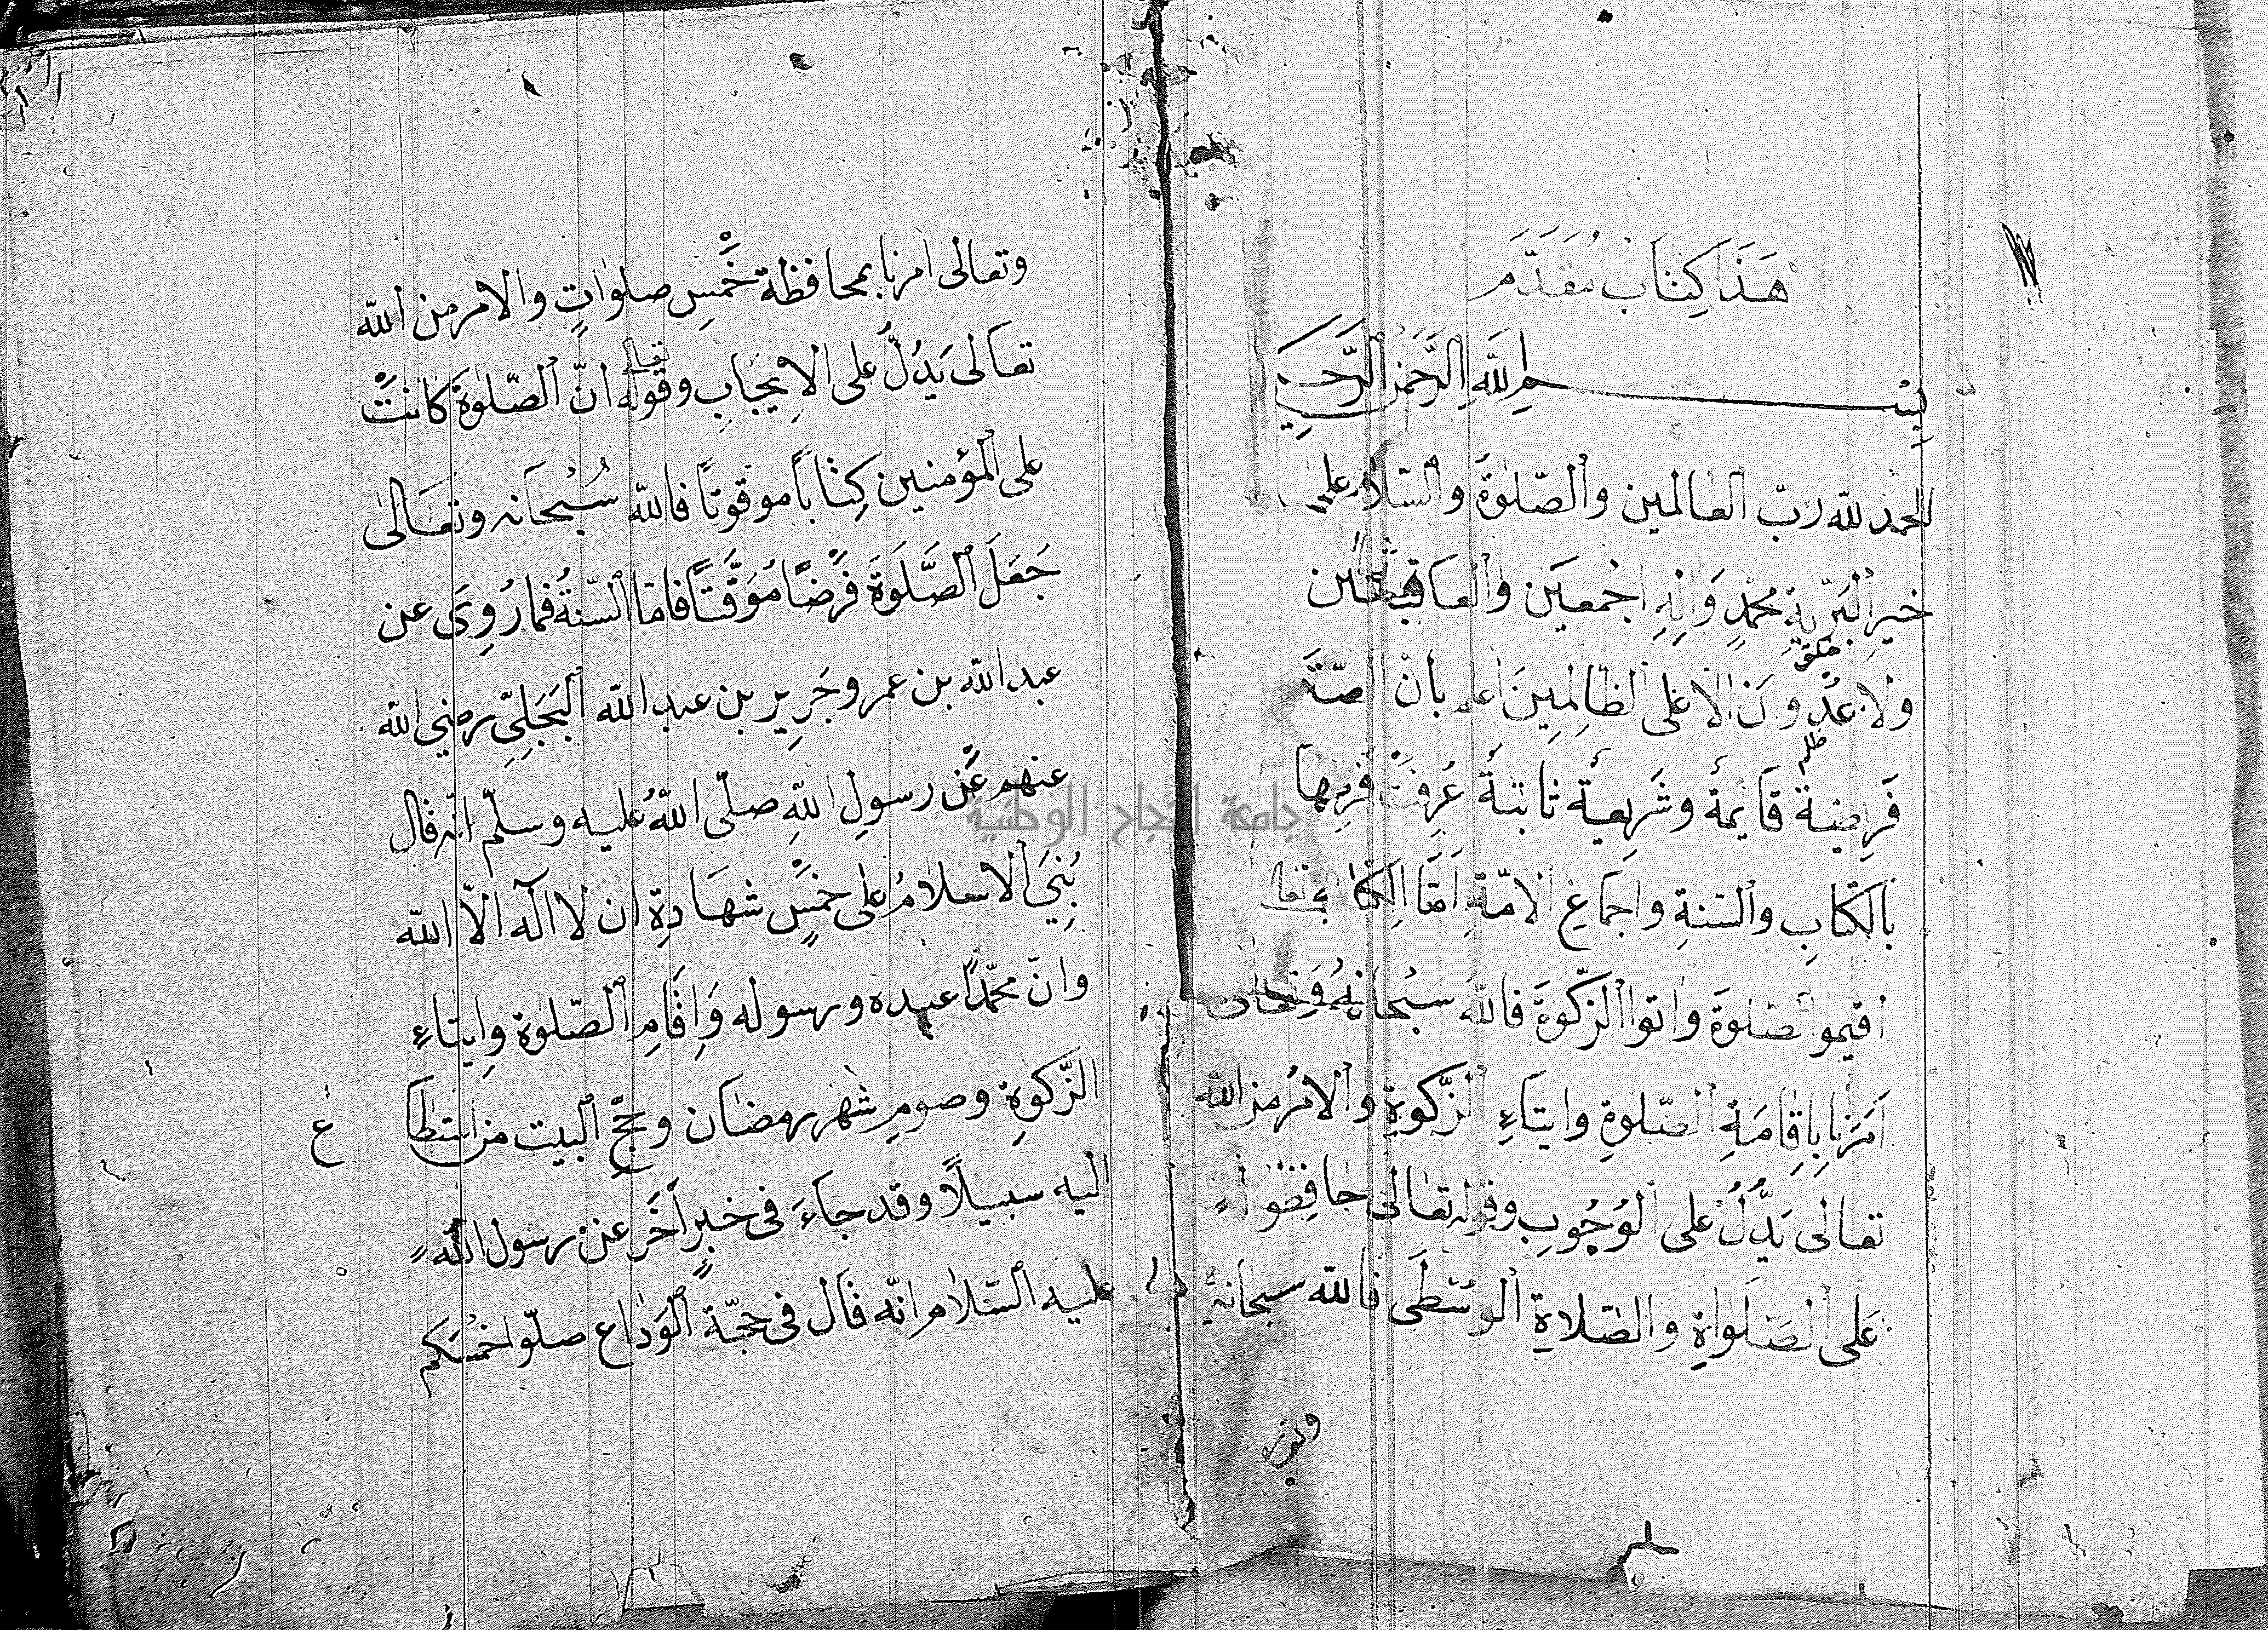 هَذَا كِتَابُ مُقَدَّمَ
بِسْمِ اللَّهِ الرَّحْمَنِ الرَّحِيمِ
الحمد للّه ربّ العالمين والصّلوةُ والسّلام على
خيرِ البَرِيّةِ محمّدٍ وَالِهِ اجمعَين والعاقبة للمتّقين
ولا عُدْوَنَ الا على الظّالِمِينَ اعلم بانّ الصّلوةَ
فَرِيضةٌ قَايمةٌ وشَرِيعةٌ ثابتةٌ عُرِفتْ فَرضيتها
بالكتابِ والسّنةِ واجماعِ الامّةِ امّا الكتاب فقوله تعالى
اقيموا الصّلوةَ واتوا الزّكوةَ فاللّه سبحانهُ وتعالى
اَمَرَنا بِاِقامَةِ الصّلوةِ وايتاءِ الزّكوةِ والامرُ من اللّه
تعالى يَدُلُّ على الوُجُوبِ وقوله تعالى حافِظوا
عَلى الصّلَواةِ والصّلاةِ الوُسْطَى فاللّه سبحانهُ
وتعالى امرنا بمحافظة خَمْسِ صلواتٍ والامر من اللّه
تعالى يَدُلُّ على الاِيجابِ وقوله تعالى انّ الصّلوةَ كانتْ
على المؤمنين كِتاباً موقوتاً فاللّه سُبْحانه وتعَالى
جَعَلَ الصَّلَوةَ فَرْضًا مُوَقَّتًا فامّا السّنةُ فما رُوِىَ عن
عبد اللّه بن عمر وجَرِير بن عبد اللّه البَجَلِىّ رضي اللّه
عنهم عَنْ رسولِ اللّهِ صلّى اللّهُ عليه وسلّم انّه قال
بُنِيَ الاسلامُ على خمْسٍ شهَادةِ ان لا اله الّا اللّه
وانّ محمّدًا عبده ورسوله وَاِقَامِ الصّلوة وايتاءِ
الزّكوةِ وصومِ شهر رمضان وحجِّ البيت من استطاع
اليه سبيلًا وقد جاءَ فى خبرٍ اخَرَ عن رسول اللّه
عليه السّلام انّه قال فى حجّة الوَدَاعِ صلّوا خمْسَكم
جامعة النجاح الوطنية